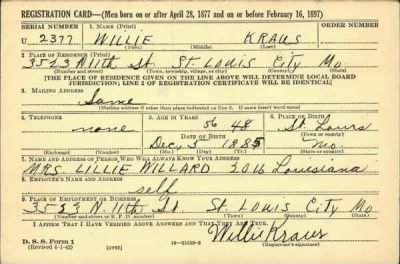 REGISTRATION CARD—(Men born on or after April 28, 1877 and on or before February 16, 1897)
SERIAL NUMBER 1. NAME (Print) ORDER NUMBER
U 2377 WILLIE KRAUS
(First) (Middle) (Last)
2. PLACE OF RESIDENCE (Print)
3523 N 11th St. St. Louis City Mo.
(Number and street) (Town, township, village, or city) (County) (State)
[THE PLACE OF RESIDENCE GIVEN ON THE LINE ABOVE WILL DETERMINE LOCAL BOARD
JURISDICTION; LINE 2 OF REGISTRATION CERTIFICATE WILL BE IDENTICAL]
3. MAILING ADDRESS
Same
[Mailing address if other than place indicated on line 2. If same insert word same]
4. TELEPHONE 5. AGE IN YEARS 6. PLACE OF BIRTH
none 56 48 St Louis
DATE OF BIRTH (Town or county)
Dec, 5 1885 Mo.
(Exchange) (Number) (Mo.) (Day) (Yr.) (State or country)
7. NAME AND ADDRESS OF PERSON WHO WILL ALWAYS KNOW YOUR ADDRESS
MRS. LILLIE WILLARD 2016 Louisiana
8. EMPLOYER'S NAME AND ADDRESS
self
9. PLACE OF EMPLOYMENT OR BUSINESS
3523 N. 11th St. St. Louis City Mo
(Number and street or R. F. D. number) (Town) (County) (State)
I AFFIRM THAT I HAVE VERIFIED ABOVE ANSWERS AND THAT THEY ARE TRUE.
D. S. S. Form 1 Willie Kraus
(Revised 4-1-42) (over) 16-21630-2 (Registrant's signature)